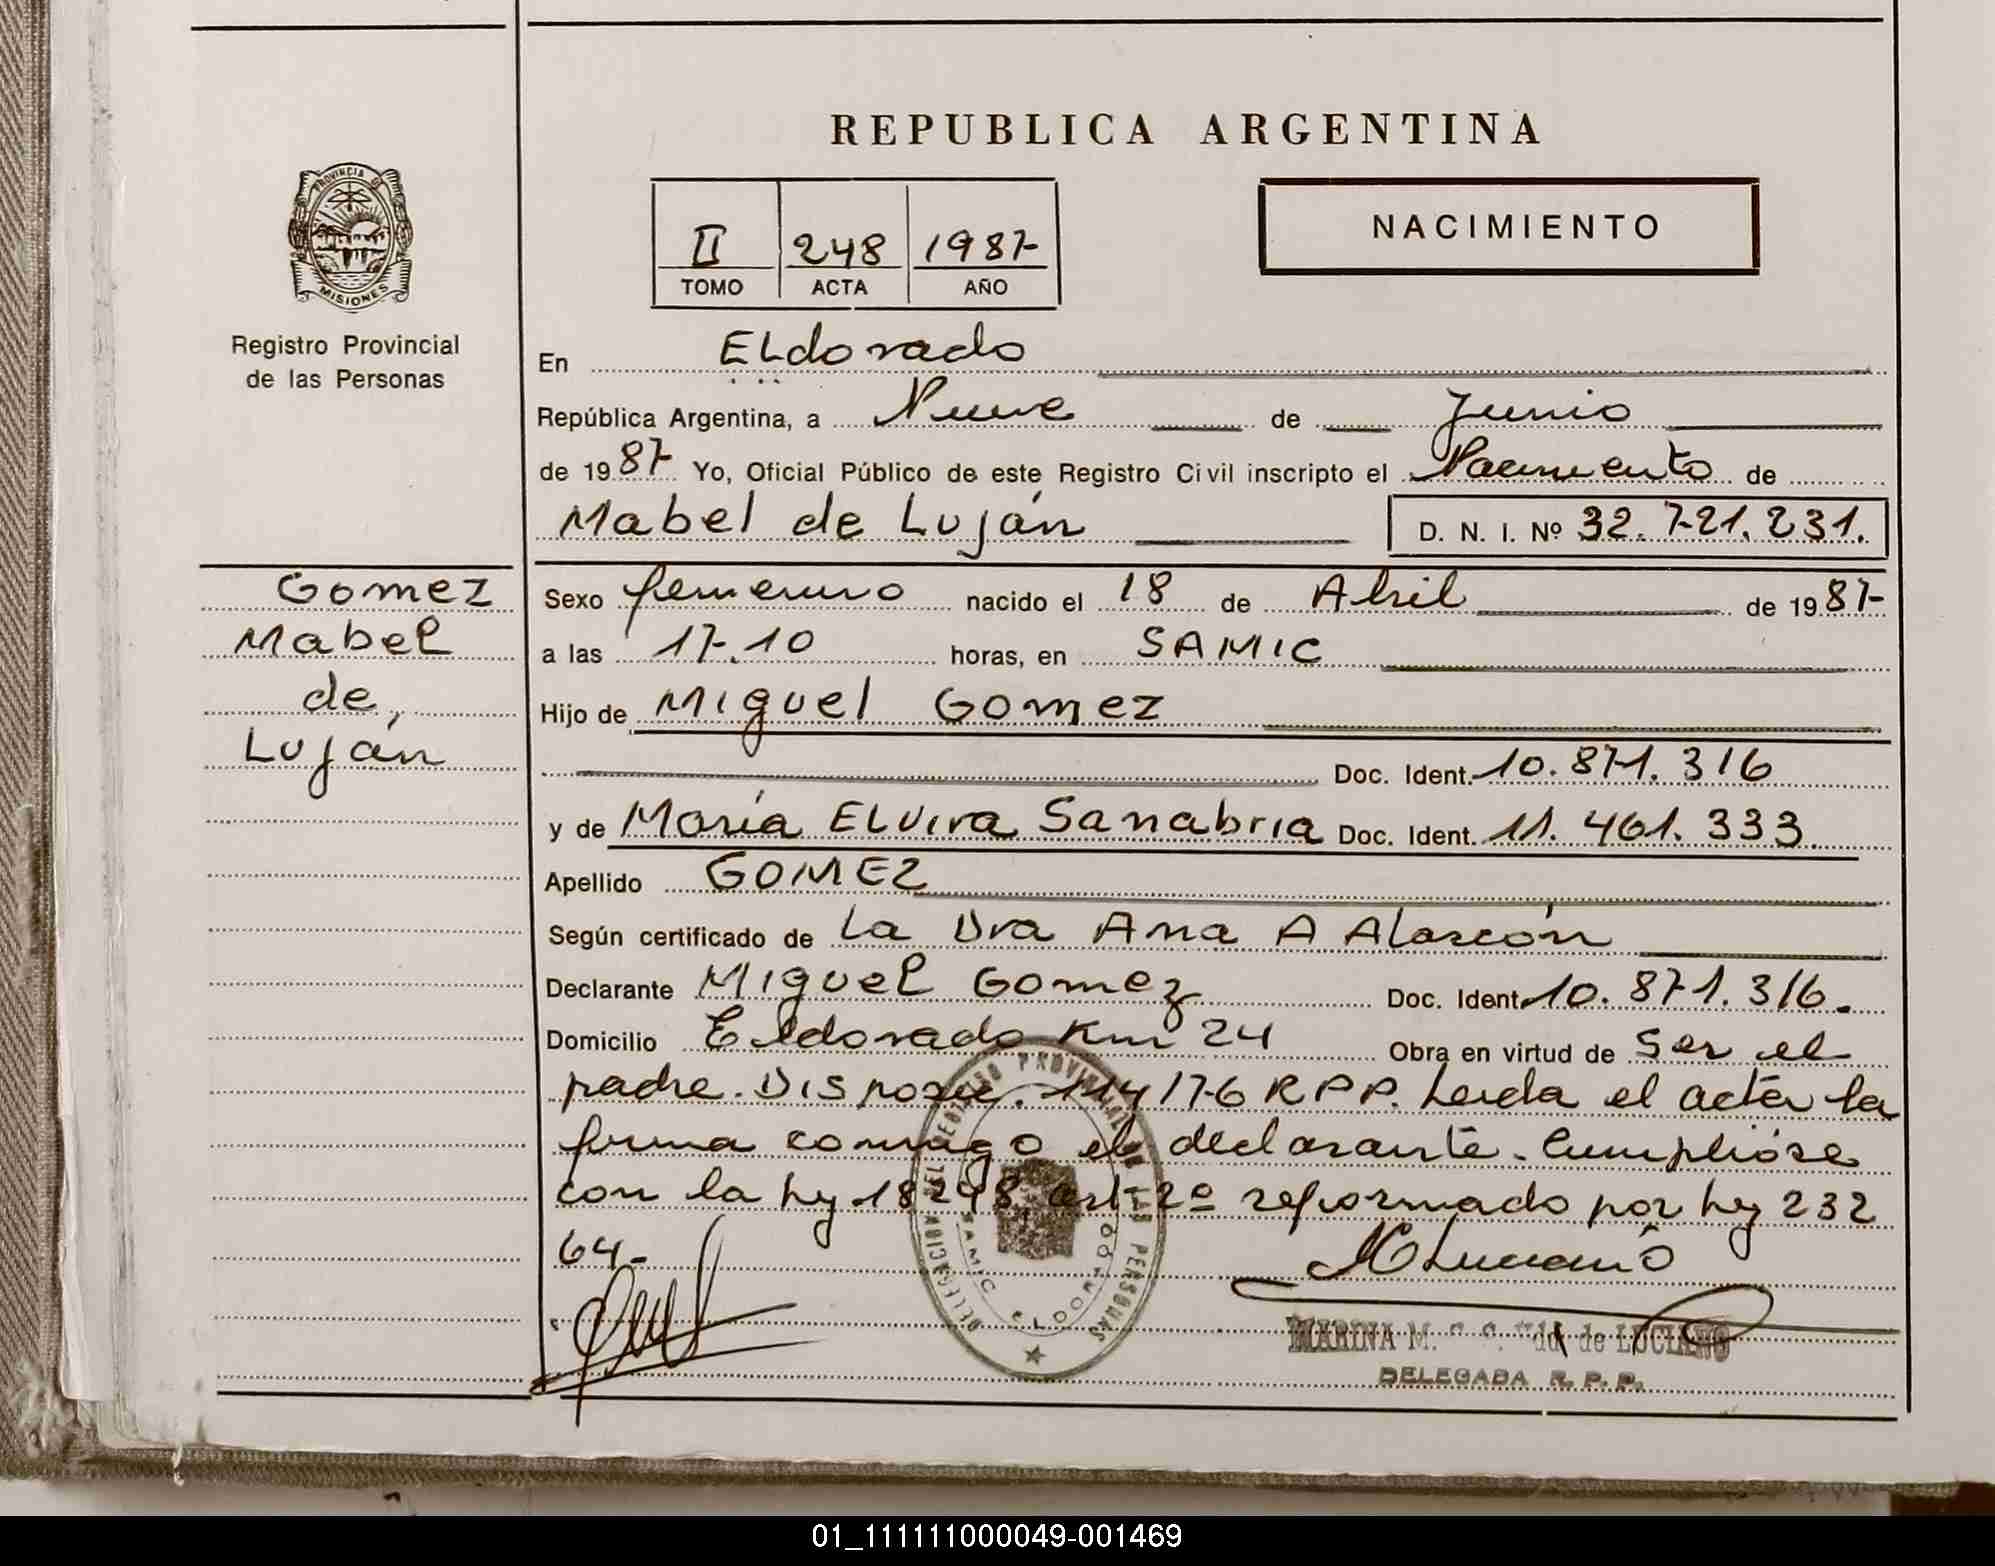 REPUBLICA ARGENTINA
PROVINCIA DE
MISIONES
Registro Provincial
de las Personas
II 248 1987
TOMO ACTA AÑO
NACIMIENTO
En Eldorado
República Argentina, a Nueve de Junio
de 1987 Yo, Oficial Público de este Registro Civil inscripto el Nacimiento de
Mabel de Luján D. N. I. Nº 32.721.231.
Gomez
Mabel
de
Luján
Sexo femenino nacido el 18 de Abril de 1987
a las 17.10 horas, en SAMIC
Hijo de Miguel Gomez
Doc. Ident. 10.871.316
y de María Elvira Sanabria Doc. Ident. 11.461.333
Apellido GOMEZ
Según certificado de La Dra Ana A Alarcón
Declarante Miguel Gomez Doc. Ident. 10.871.316.
Domicilio Eldorado Km 24 Obra en virtud de Ser el
padre. Disposic. 114/76 R P P. Leida el acta la
firma conmigo el declarante. Cumplióse
con la ley 18248, art 2º reformado por ley 232
64-
DELEGACION DEL REGISTRO PROVINCIAL DE LAS PERSONAS
SAMIC ELDORADO
MLuciano
MARINA M. Vda de LUCIANO
DELEGADA R. P. P.
01_111111000049-001469